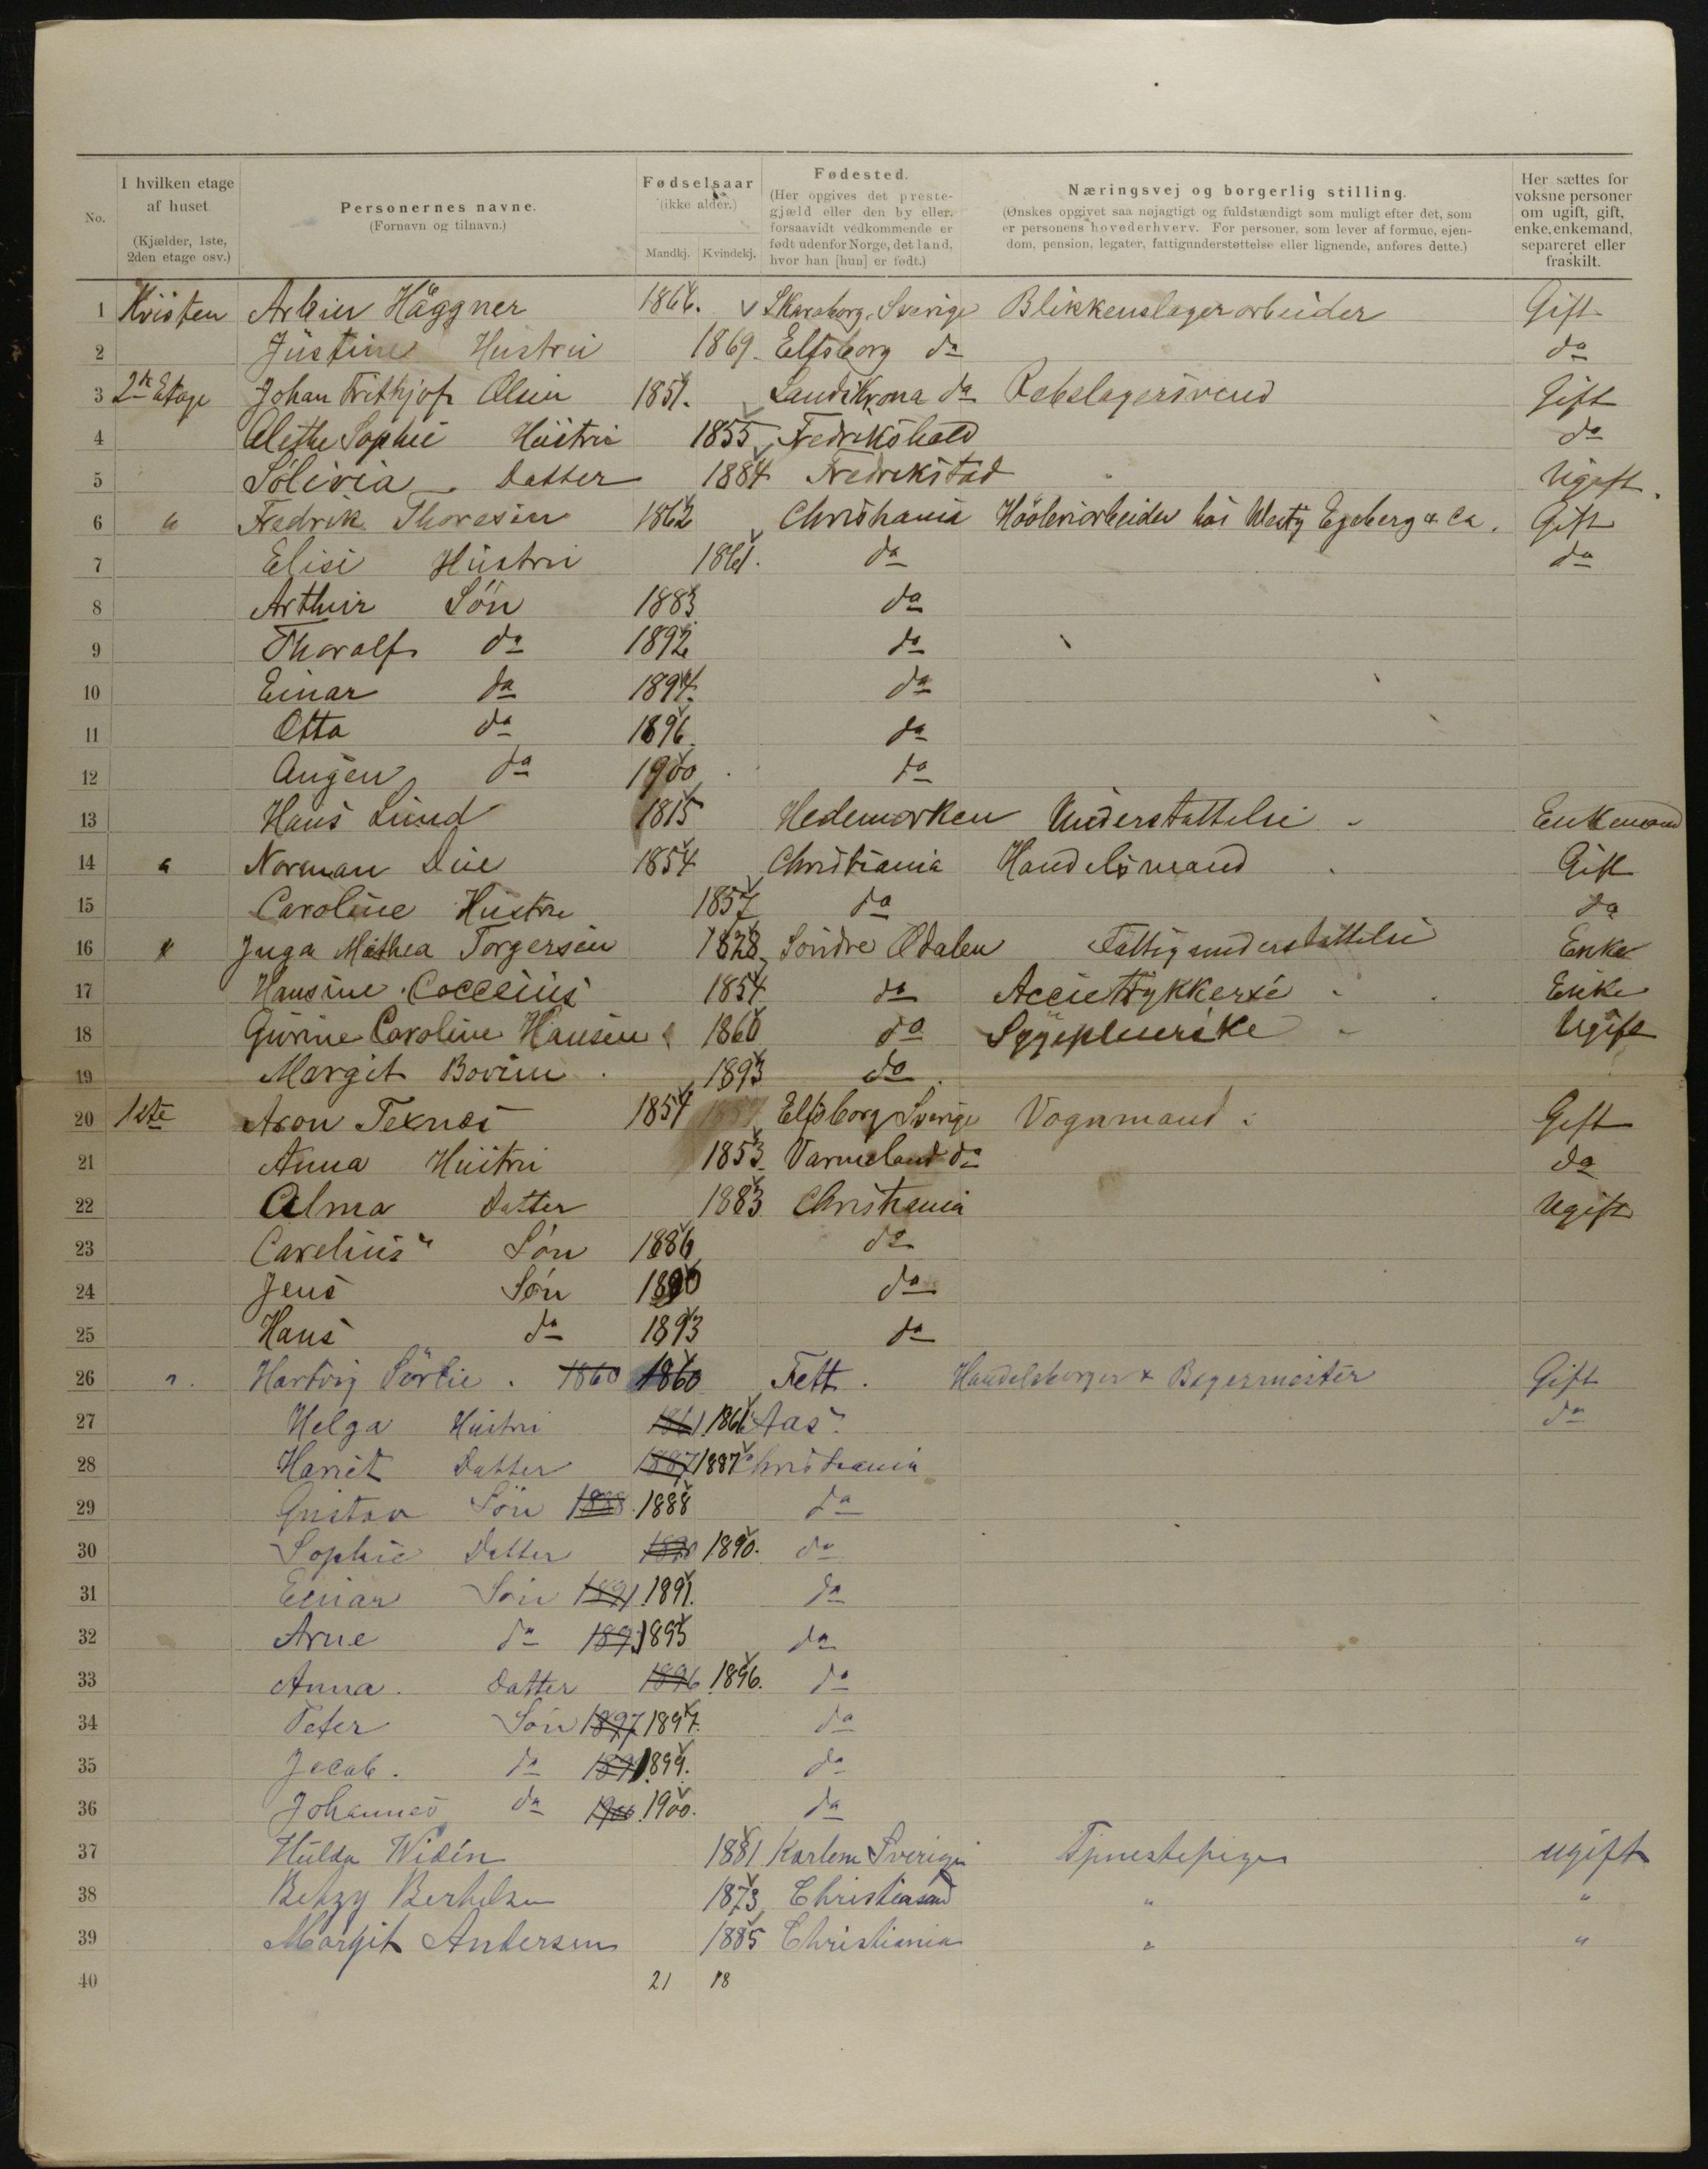 No.
I hvilken etage af huset. (Kjælder, 1ste, 2den etage osv.)
Personernes navne. (Fornavn og tilnavn.)
Fødselsaar (ikke alder.) Mandkj. Kvindekj.
Fødested. (Her opgives det prestegjæld eller den by eller, forsaavidt vedkommende er født udenfor Norge, det land, hvor han [hun] er født.)
Næringsvej og borgerlig stilling. (Ønskes opgivet saa nøjagtigt og fuldstændigt som muligt efter det, som er personens hovederhverv. For personer, som lever af formue, ejendom, pension, legater, fattigunderstøttelse eller lignende, anføres dette.)
Her sættes for voksne personer om ugift, gift, enke, enkemand, separeret eller fraskilt.
1 Kvisten Arbin Häggner 1866. Skaraborg. Sverige Blikkenslagerarbeider Gift
2 Justine Hustru 1869 Elfsborg do do
3 2den Etage Johan Frithjof Olsen 1851. Landskrona do Rebslagersvend Gift
4 Alethe Sophie Hustru 1855 Fredrikshald do
5 Solivia Datter 1884 Fredrikstad Ugift
6 " Fredrik Thoresen 1862 Christiania Hööleriarbeider hos Westy Egeberg & Co. Gift
7 Elise Hustru 1861. do do
8 Arthur Søn 1883 do
9 Thoralf do 1892 do
10 Einar do 1894. do
11 Otto do 1896. do
12 Augen do 1900 do
13 Hans Lund 1815 Hedemarken Understøttelse Enkemand
14 " Norman Due 1854 Christiania Handelsmand Gift
15 Caroline Hustru 1857 do do
16 " Inga Mathea Torgersen 1828 Søndre Odalen Fattigunderstøttelse Enke
17 Hansine Coccius 1854 do Enke
18 Gurine Caroline Hansen 1860 do Sygepleierske Ugift
19 Margit Bovim 1893 do
20 1ste Aron Texnes 1854 Elfsborg Sverige Vognmand Gift
21 Anna Hustru 1853 Varmeland do do
22 Alma Datter 1883 Christiania Ugift
23 Carelius Søn 1886 do
24 Jens Søn 1890 do
25 Hans do 1893 do
26 " Hartvig Sörlie 1860 1860 Fett. Handelsborger & Bagermester Gift
27 Helga Hustru 1861 1861 Aas. do
28 Harriet Datter 1887 1887 Christiania
29 Gustav Søn 1888 1888 do
30 Sophie Datter 1890 1890. do
31 Einar Søn 1891 1891. do
32 Arne do 1895 do
33 Anna. Datter 1896 1896. do
34 Peter Søn 1897 1897. do
35 Jacob. do 1899. do
36 Johannes do 1900 1900. do
37 Hulda Widén 1881 Sverige Tjenestepige ugift
38 Betzy Berthelsen 1873 Christiansand " "
39 Margit Andersen 1885 Christiania " "
40 21 18